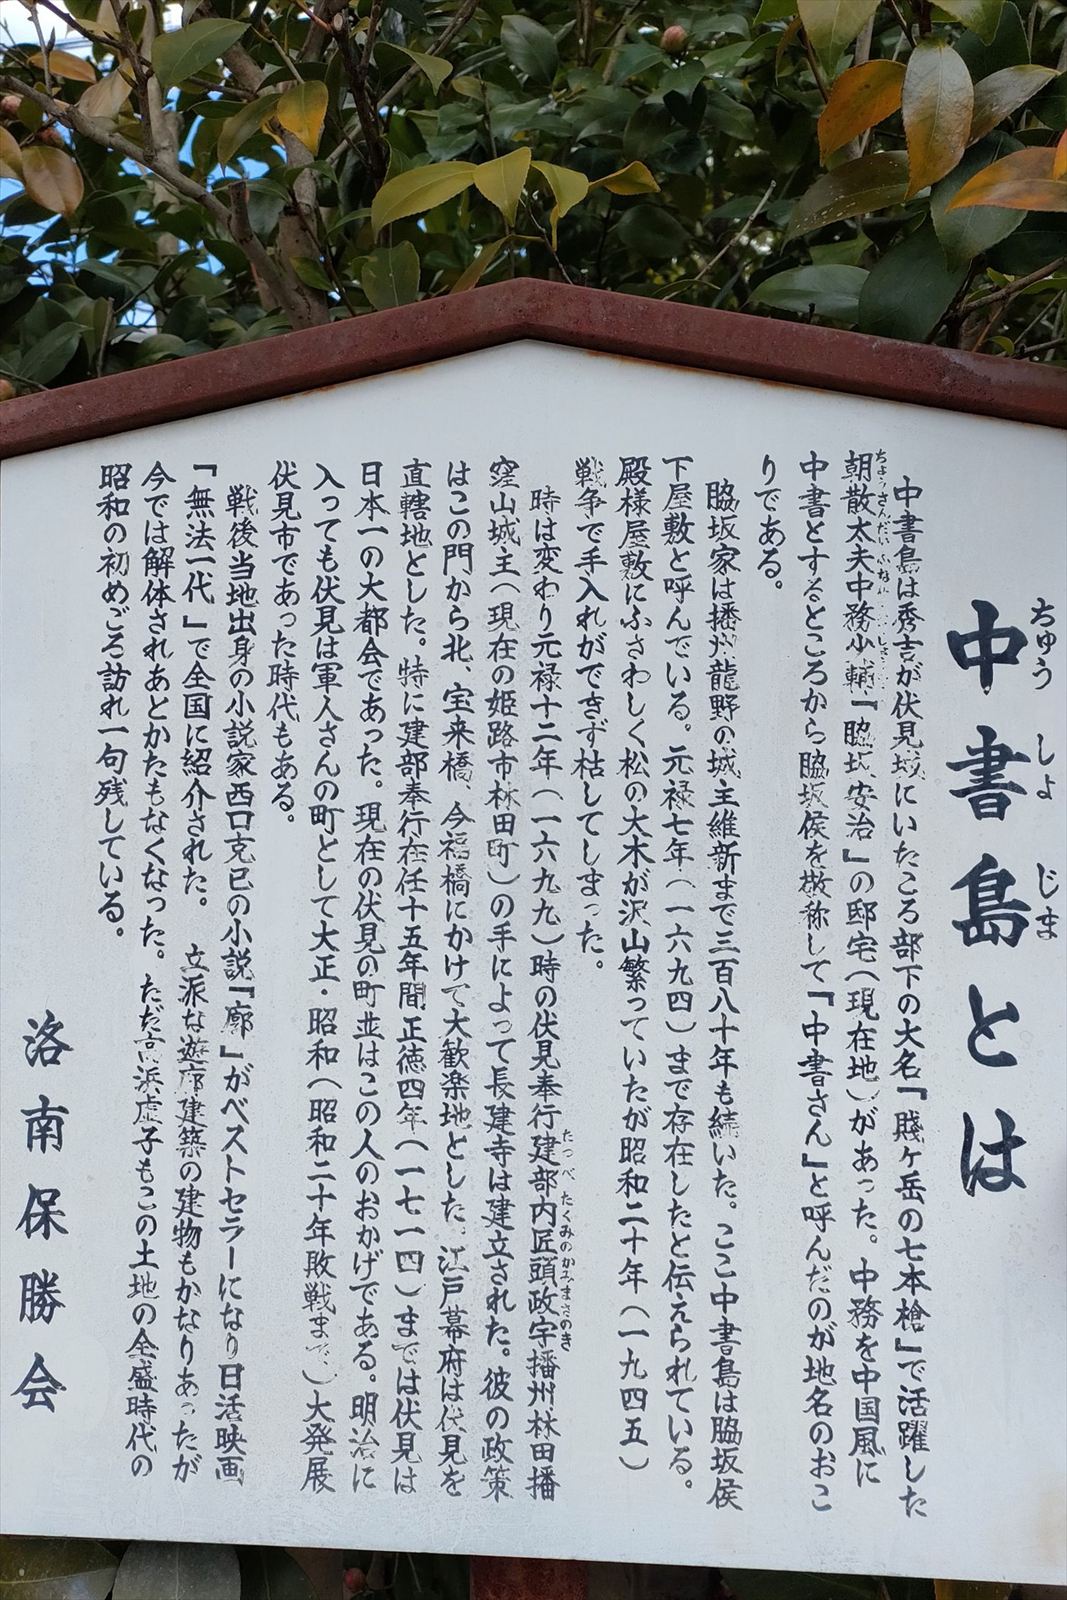 中書島とは
ちゅう しょ じま
中書島は秀吉が伏見城にいたころ部下の大名「賤ヶ岳の七本槍」で活躍した
朝散太夫中務少輔「脇坂安治」の邸宅(現在地)があった。中務を中国風に
中書とするところから脇坂侯を敬称して「中書さん」と呼んだのが地名のおこ
りである。
脇坂家は播州龍野の城主維新まで三百八十年も続いた。ここ中書島は脇坂侯
下屋敷と呼んでいる。元禄七年(一六九四)まで存在したと伝えられている。
殿様屋敷にふさわしく松の大木が沢山繁っていたが昭和二十年(一九四五)
戦争で手入れができず枯してしまった。
時は変わり元禄十二年(一六九九)時の伏見奉行建部内匠頭政宇播州林田播
たつべ たくみのかみまさのき
窪山城主(現在の姫路市林田町)の手によって長建寺は建立された。彼の政策
はこの門から北、宝来橋、今福橋にかけて大歓楽地とした。江戸幕府は伏見を
直轄地とした。特に建部奉行在任十五年間正徳四年(一七一四)までは伏見は
日本一の大都会であった。現在の伏見の町並はこの人のおかげである。明治に
入っても伏見は軍人さんの町として大正・昭和(昭和二十年敗戦まで)大発展
伏見市であった時代もある。
戦後当地出身の小説家西口克已の小説「廓」がベストセラーになり日活映画
「無法一代」で全国に紹介された。 立派な遊廓建築の建物もかなりあったが
今では解体されあとかたもなくなった。ただ高浜虚子もこの土地の全盛時代の
昭和の初めごろ訪れ一句残している。
洛南保勝会